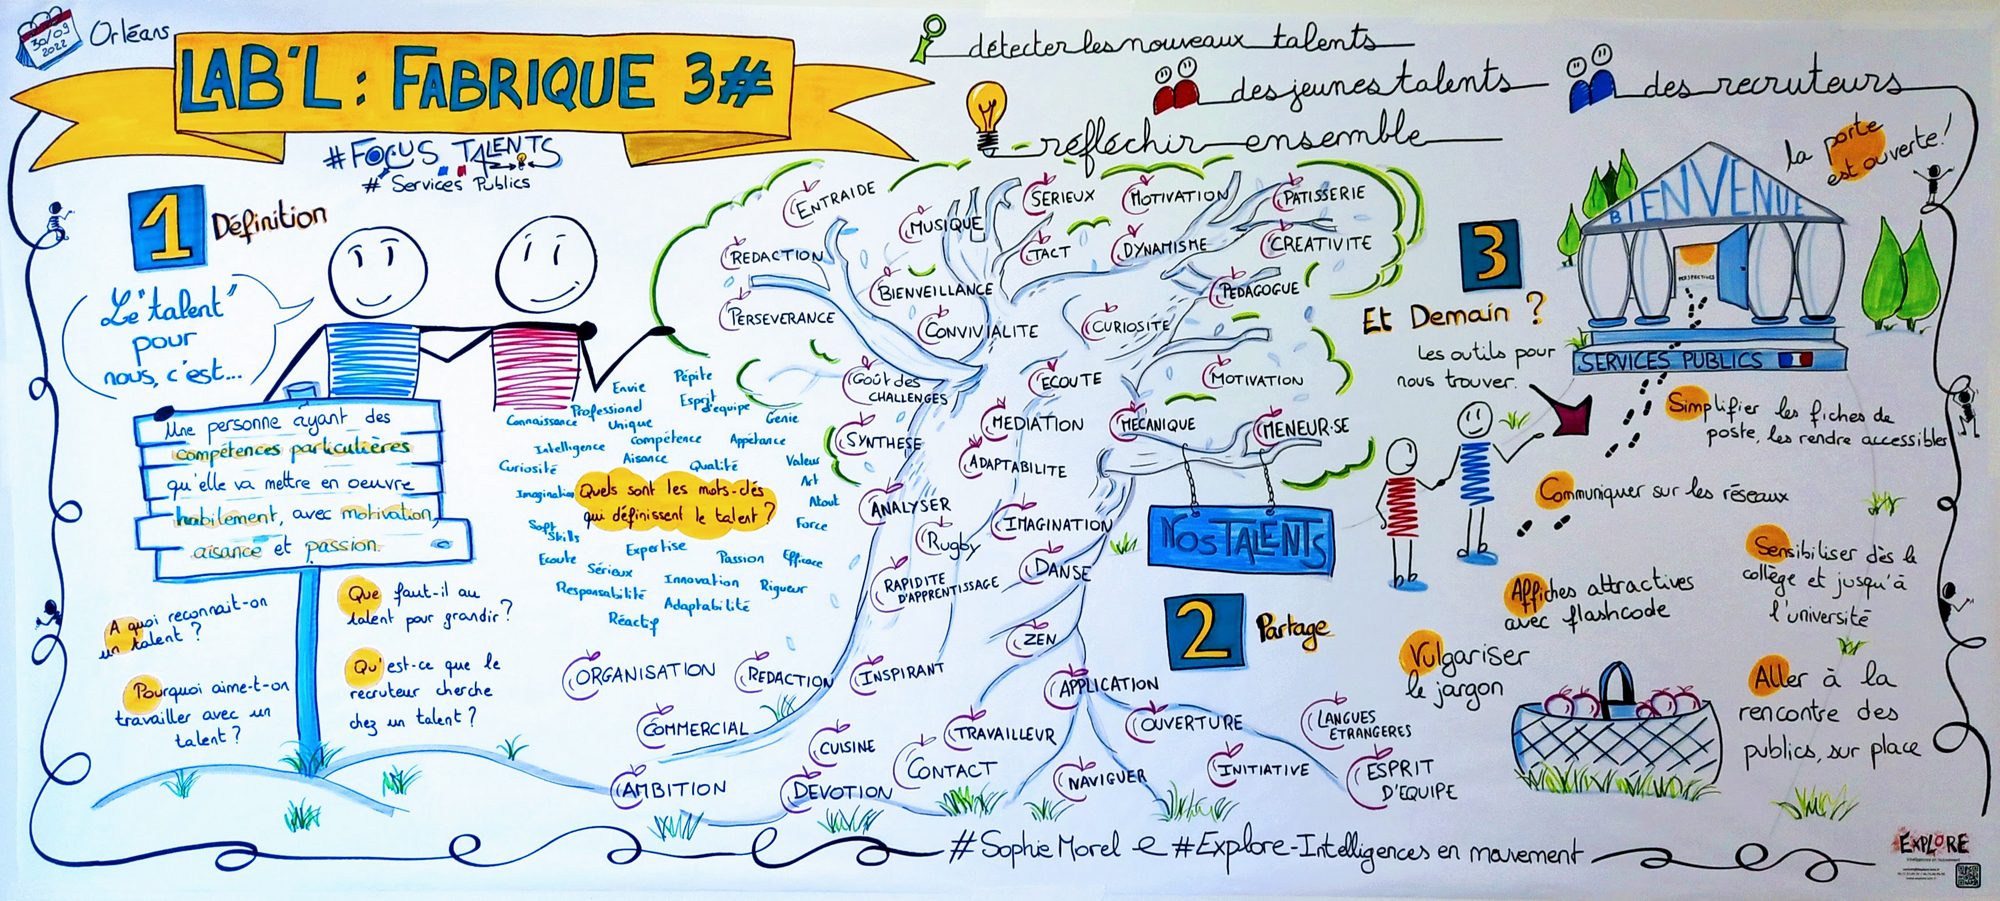 30/09
2022
Orléans
LAB'L : FABRIQUE 3#
#FOCUS TALENTS
# Services Publics
détecter les nouveaux talents
des jeunes talents
des recruteurs
réfléchir ensemble
la porte
est ouverte !
1
Définition
Le "talent"
pour
nous, c'est...
Une personne ayant des
compétences particulières
qu'elle va mettre en oeuvre
habilement, avec motivation,
aisance et passion.
A quoi reconnait-on
un talent ?
Pourquoi aime-t-on
travailler avec un
talent ?
Que faut-il au
talent pour grandir ?
Qu'est-ce que le
recruteur cherche
chez un talent ?
Envie
Pépite
Professionel
Esprit
d'équipe
Connaissance
Unique
Génie
Intelligence
Compétence
Appétance
Curiosité
Aisance
Qualité
Valeur
Imagination
Art
Atout
Quels sont les mots-clés
qui définissent le talent ?
Soft
Skills
Force
Ecoute
Expertise
Passion
Efficace
Sérieux
Innovation
Rigueur
Responsabilité
Adaptabilité
Réactif
ENTRAIDE
MUSIQUE
SERIEUX
MOTIVATION
PATISSERIE
REDACTION
TACT
DYNAMISME
CREATIVITE
BIENVEILLANCE
PEDAGOGUE
PERSEVERANCE
CONVIVIALITE
CURIOSITE
GOÛT DES
CHALLENGES
ECOUTE
MOTIVATION
SYNTHESE
MEDIATION
MECANIQUE
MENEUR·SE
ADAPTABILITE
ANALYSER
IMAGINATION
RUGBY
RAPIDITE
D'APPRENTISSAGE
DANSE
ZEN
NOS TALENTS
2
Partage
ORGANISATION
REDACTION
INSPIRANT
APPLICATION
COMMERCIAL
CUISINE
TRAVAILLEUR
OUVERTURE
LANGUES
ETRANGERES
AMBITION
DEVOTION
CONTACT
NAVIGUER
INITIATIVE
ESPRIT
D'EQUIPE
3
Et Demain ?
Les outils pour
nous trouver.
BIENVENUE
PERSPECTIVES
SERVICES PUBLICS
Simplifier les fiches de
poste, les rendre accessibles
Communiquer sur les réseaux
Sensibiliser dès le
collège et jusqu'à
l'université
Affiches attractives
avec flashcode
Vulgariser
le jargon
Aller à la
rencontre des
publics, sur place
#Sophie Morel e #Explore-Intelligences en mouvement
EXPLORE